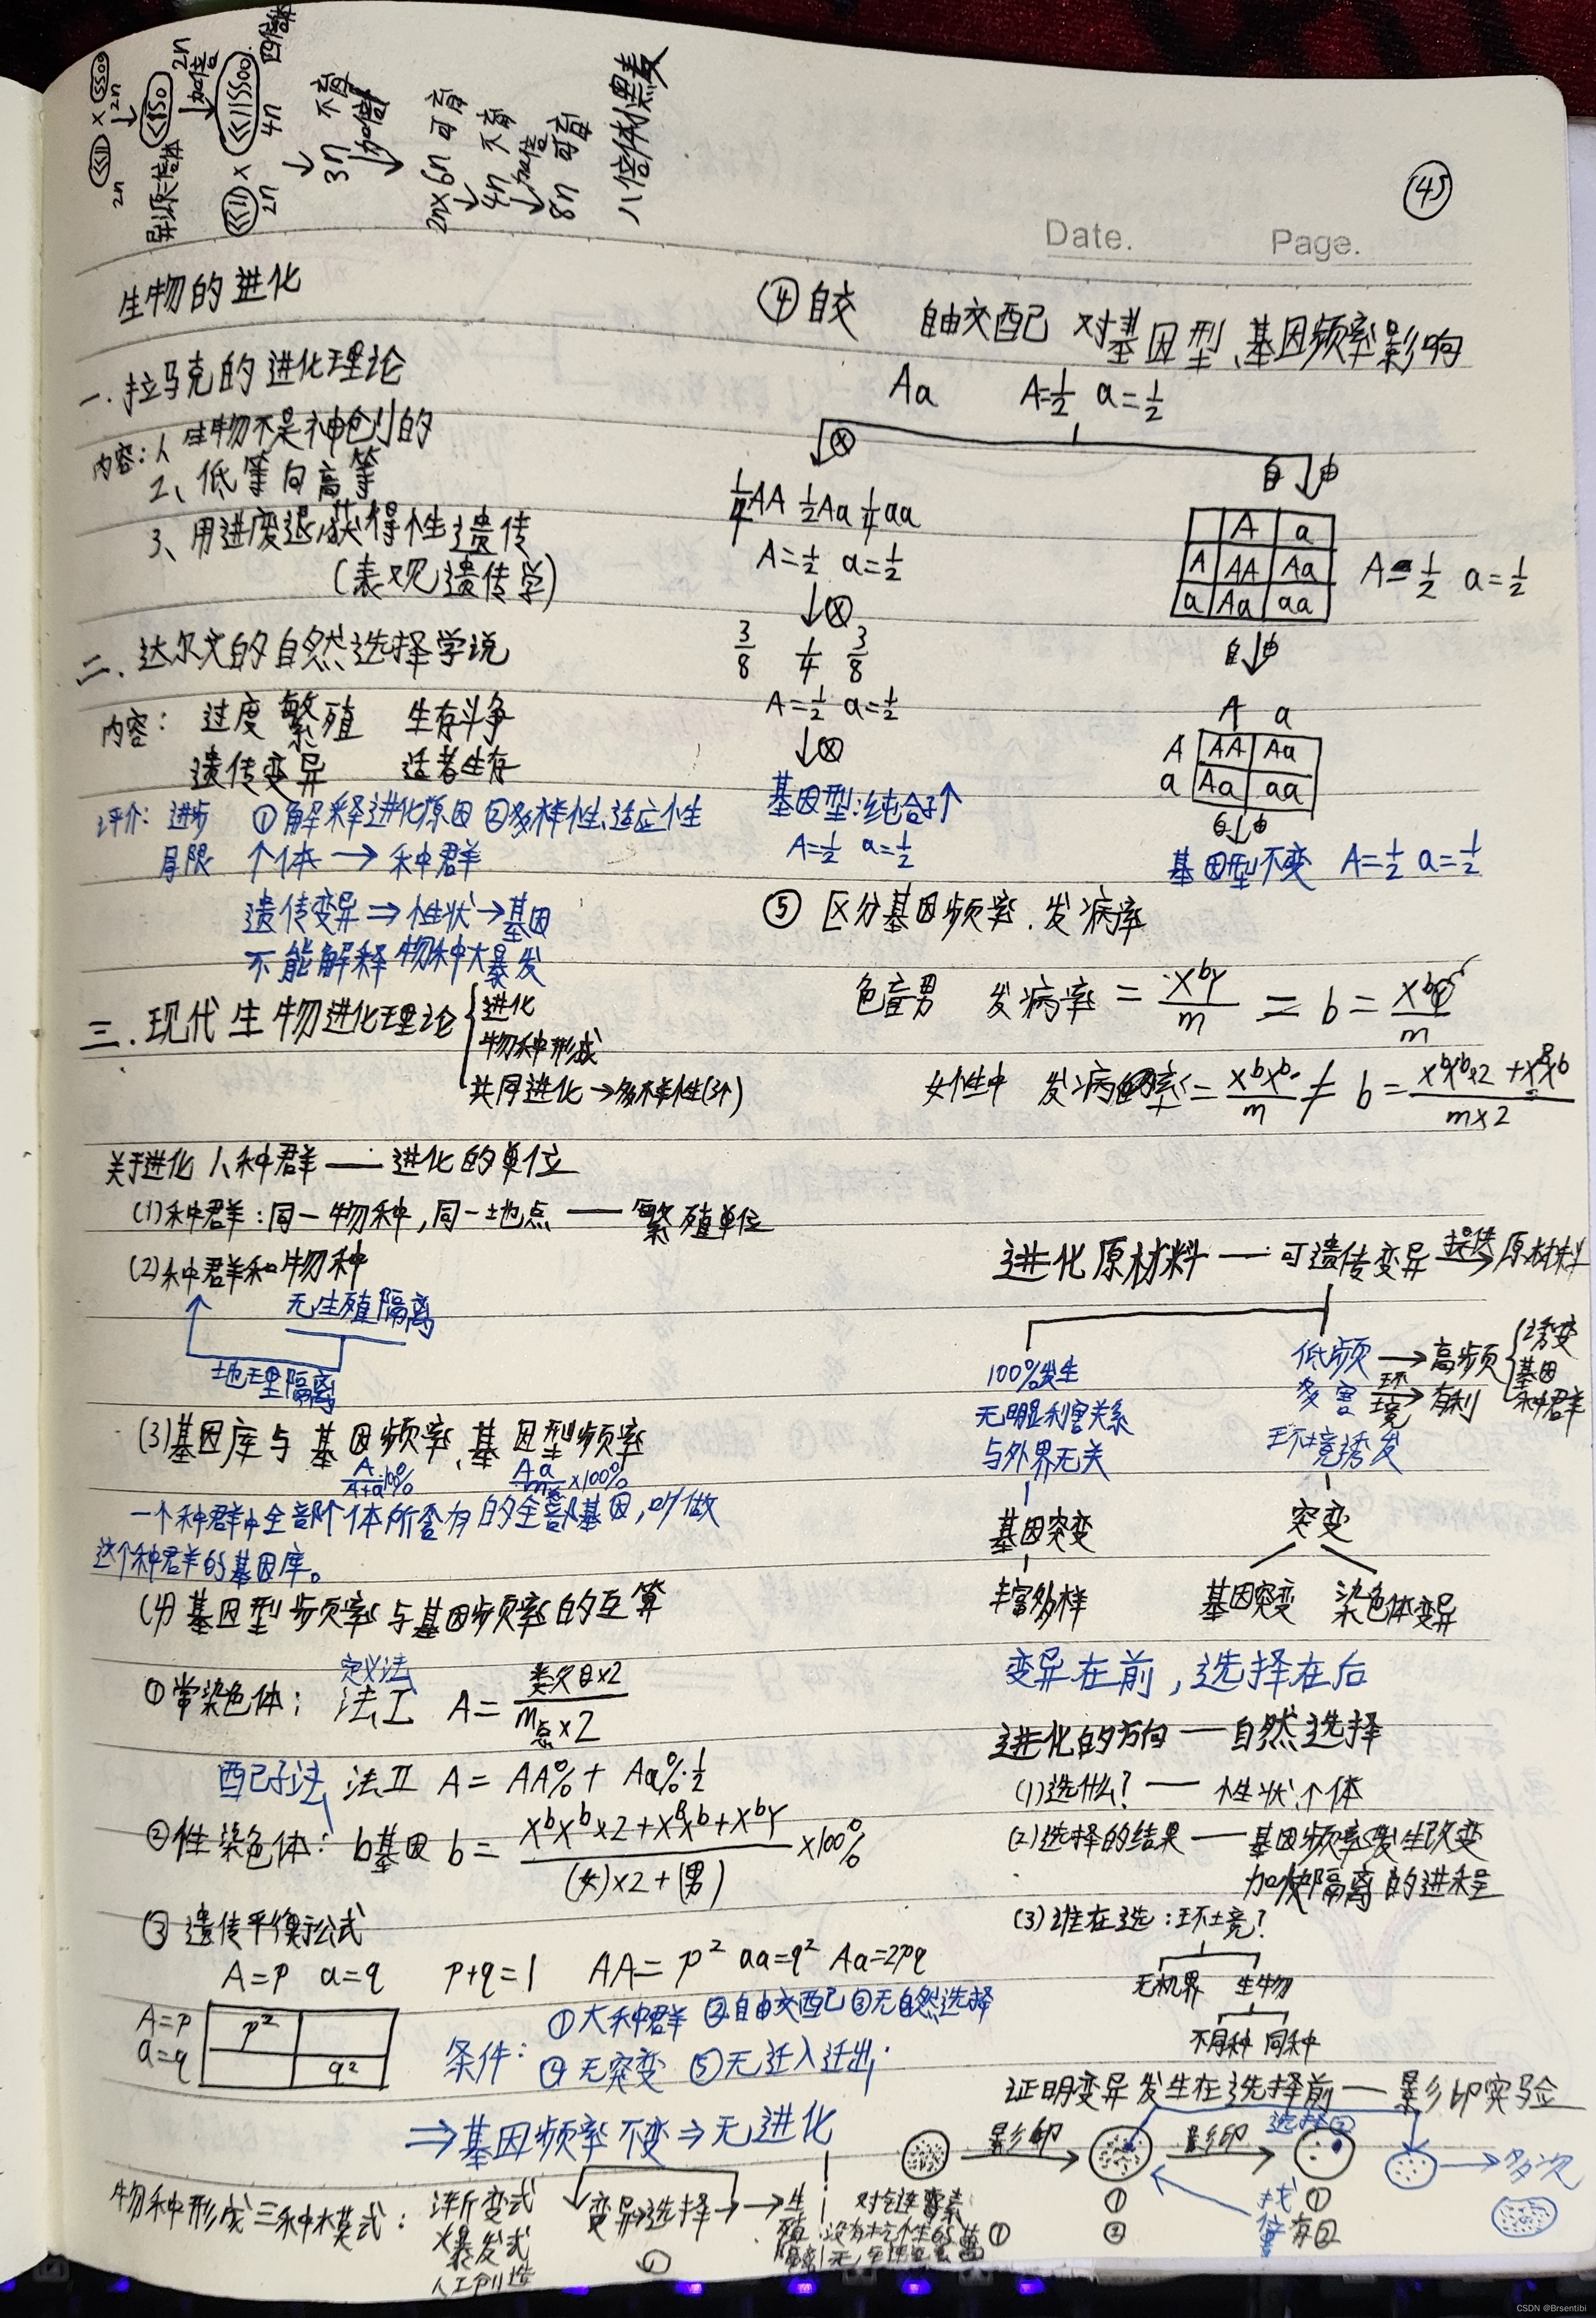 45
Date.
Page.
2n
2n
异源二倍体
2n
加倍
4n
四倍体
2n
3n
不育
加倍
2n×6n
可育
4n
不育
加倍
8n
可育
八倍体小黑麦
生物的进化
一.拉马克的进化理论
内容:1、生物不是神创的
2、低等向高等
3、用进废退,获得性遗传
(表观遗传学)
二.达尔文的自然选择学说
内容: 过度繁殖 生存斗争
遗传变异 适者生存
评价: 进步 ①解释进化原因 ②多样性、适应性
局限 个体 → 种群
遗传变异⇒性状→基因
不能解释物种大暴发
三.现代生物进化理论
进化
物种形成
共同进化→多样性(3个)
关于进化 1、种群 — 进化的单位
(1)种群:同一物种,同一地点 — 繁殖单位
(2)种群和物种
无生殖隔离
地理隔离
(3)基因库与基因频率、基因型频率
A/A+a 100% Aa/m总 ×100%
一个种群中全部个体所含有的全部基因,叫做
这个种群的基因库。
(4)基因型频率与基因频率的互算
定义法
①常染色体: 法I A= 数目×2 / m总×2
配子法 法II A= AA%+ Aa%·1/2
②性染色体: b基因 b= XᵇXᵇ×2+XᴮXᵇ+XᵇY / (女)×2+(男) ×100%
③遗传平衡公式
A=p a=q p+q=1 AA=p² aa=q² Aa=2pq
A=p
a=q
p²
q²
条件: ①大种群 ②自由交配 ③无自然选择
④无突变 ⑤无迁入迁出
⇒基因频率不变⇒无进化
物种形成三种模式: 渐变式
爆发式
人工创造
变异 选择 → 生殖隔离
④自交 自由交配 对基因型、基因频率影响
Aa A=1/2 a=1/2
自由
1/4AA 1/2Aa 1/4aa
A=1/2 a=1/2
3/8 1/4 3/8
A=1/2 a=1/2
基因型:纯合子↑
A=1/2 a=1/2
A a
A AA Aa
a Aa aa
A=1/2 a=1/2
自由
A a
A AA Aa
a Aa aa
自由
基因型不变 A=1/2 a=1/2
⑤区分基因频率.发病率
色盲男 发病率 = XᵇY / m = b =
女性中 发病率= XᵇXᵇ / m ≠ b = XᵇXᵇ×2+XᴮXᵇ / m×2
进化原材料 — 可遗传变异 提供→ 原材料
100%发生
无明显利害关系
与外界无关
基因突变
丰富多样
低频 → 高频
多害 环境→ 有利
诱变
基因
种群
环境诱发
突变
基因突变 染色体变异
变异在前,选择在后
进化的方向 — 自然选择
(1)选什么? — 性状、个体
(2)选择的结果 — 基因频率发生改变
加快隔离的进程
(3)谁在选:环境?
无机界 生物
不同种 同种
证明变异发生在选择前 — 影印实验
影印
影印
选择②
多次
①
②
找①
位有②
CSDN @Brsentibi